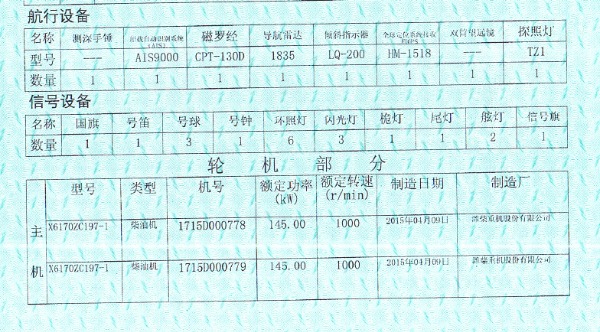 航行设备
名称 测深手锤 船载自动识别系统(AIS) 磁罗经 导航雷达 倾斜指示器 全球定位系统接收 双筒望远镜 探照灯
型号 --- AIS9000 CPT-130D 1835 LQ-200 HM-1518 --- TZ1
数量 1 1 1 1 1 1 1 1
信号设备
名称 国旗 号笛 号球 号钟 环照灯 闪光灯 桅灯 尾灯 舷灯 信号旗
数量 1 1 3 1 6 3 1 1 2 1
轮机部分
型号 类型 机号 额定功率(kW) 额定转速(r/min) 制造日期 制造厂
主 X6170ZC197-1 柴油机 1715D000778 145.00 1000 2015年04月09日 潍柴重机股份有限公司
机 X6170ZC197-1 柴油机 1715D000779 145.00 1000 2015年04月09日 潍柴重机股份有限公司